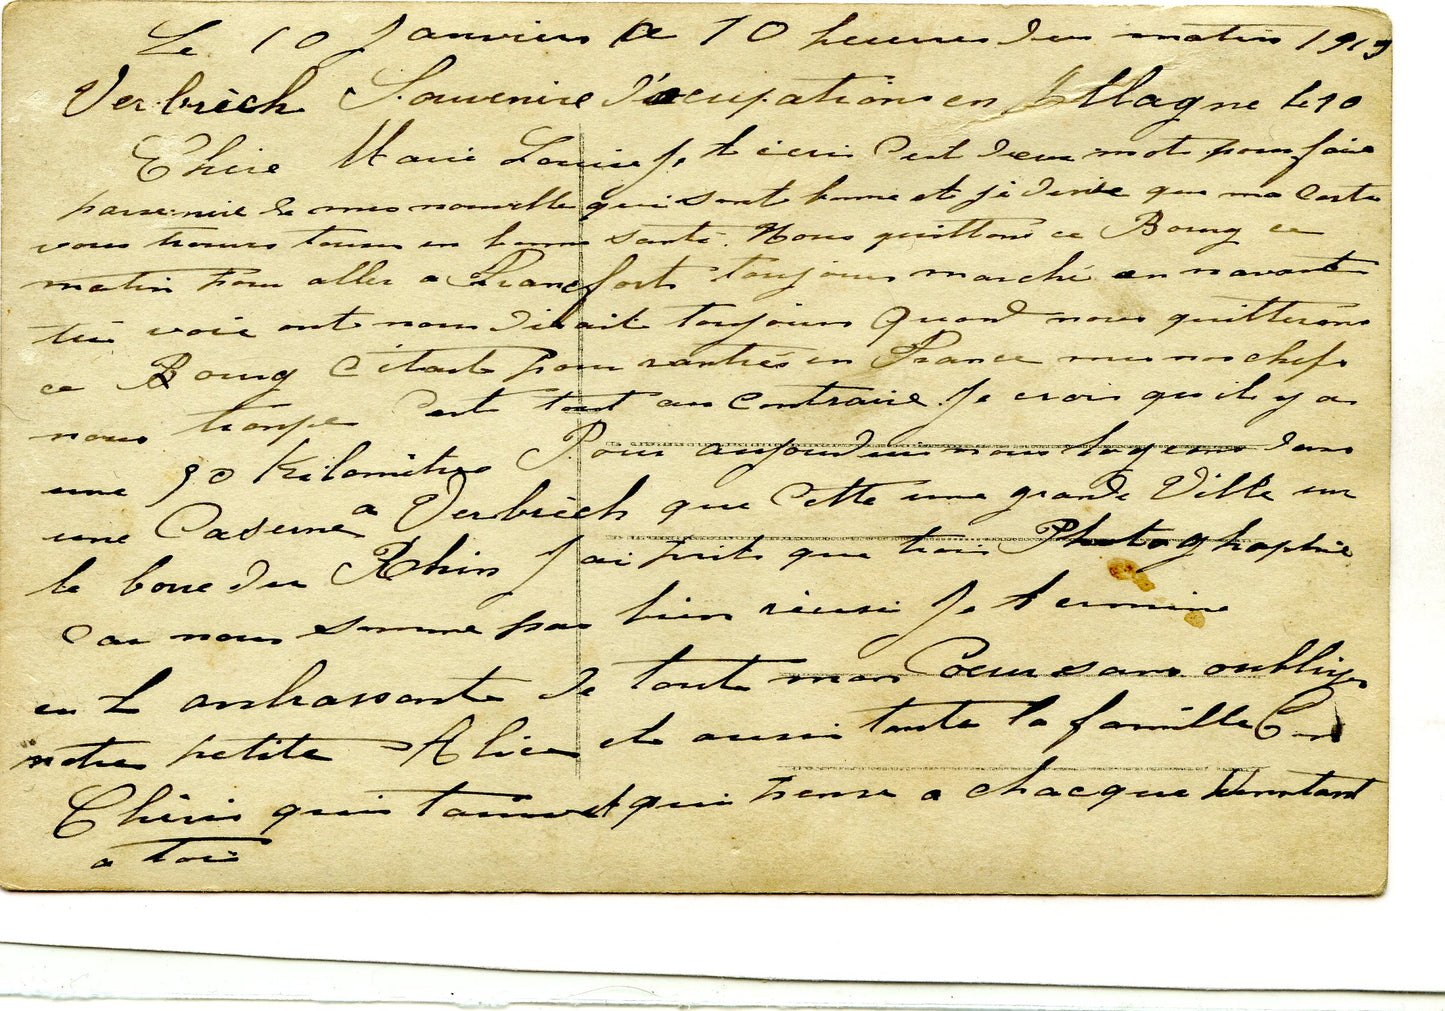 Le 10 Janvier a 10 heures du matin 1919
Verbrich Souvenire d'ocupations en Allagne le 10
Chire Marie Louise Je t ecri c'est deux mot pour faire
parvenire de mes nouvelle qui sont bonne et je desire que ma carte
vous trouve tous en bonne santé. Nous quittons ce Bourg ce
matin pour aller a Francfort toujours marché en navant
tu voie ont nous disait toujours quand nous quitterons
ce Bourg c'était pour rantrés en France mes nos chefs
nous trompe c'est tout au contraire. Je crois qu'il y a
une 90 kilomitre Pour aujourdui nous logeons dans
une Caserne a Verbrich que cette une grande Ville sur
le bore du Rhin J ai prit que trois Photoghaphie
Car nous somme pas bien réeusi Je termine
en t ambrassante de tout mon Coeur sans oublliyer
notre petite Alice et aussi toute la famille Ton
Chéris qui t'aime et qui pense a chacque instant
a toi